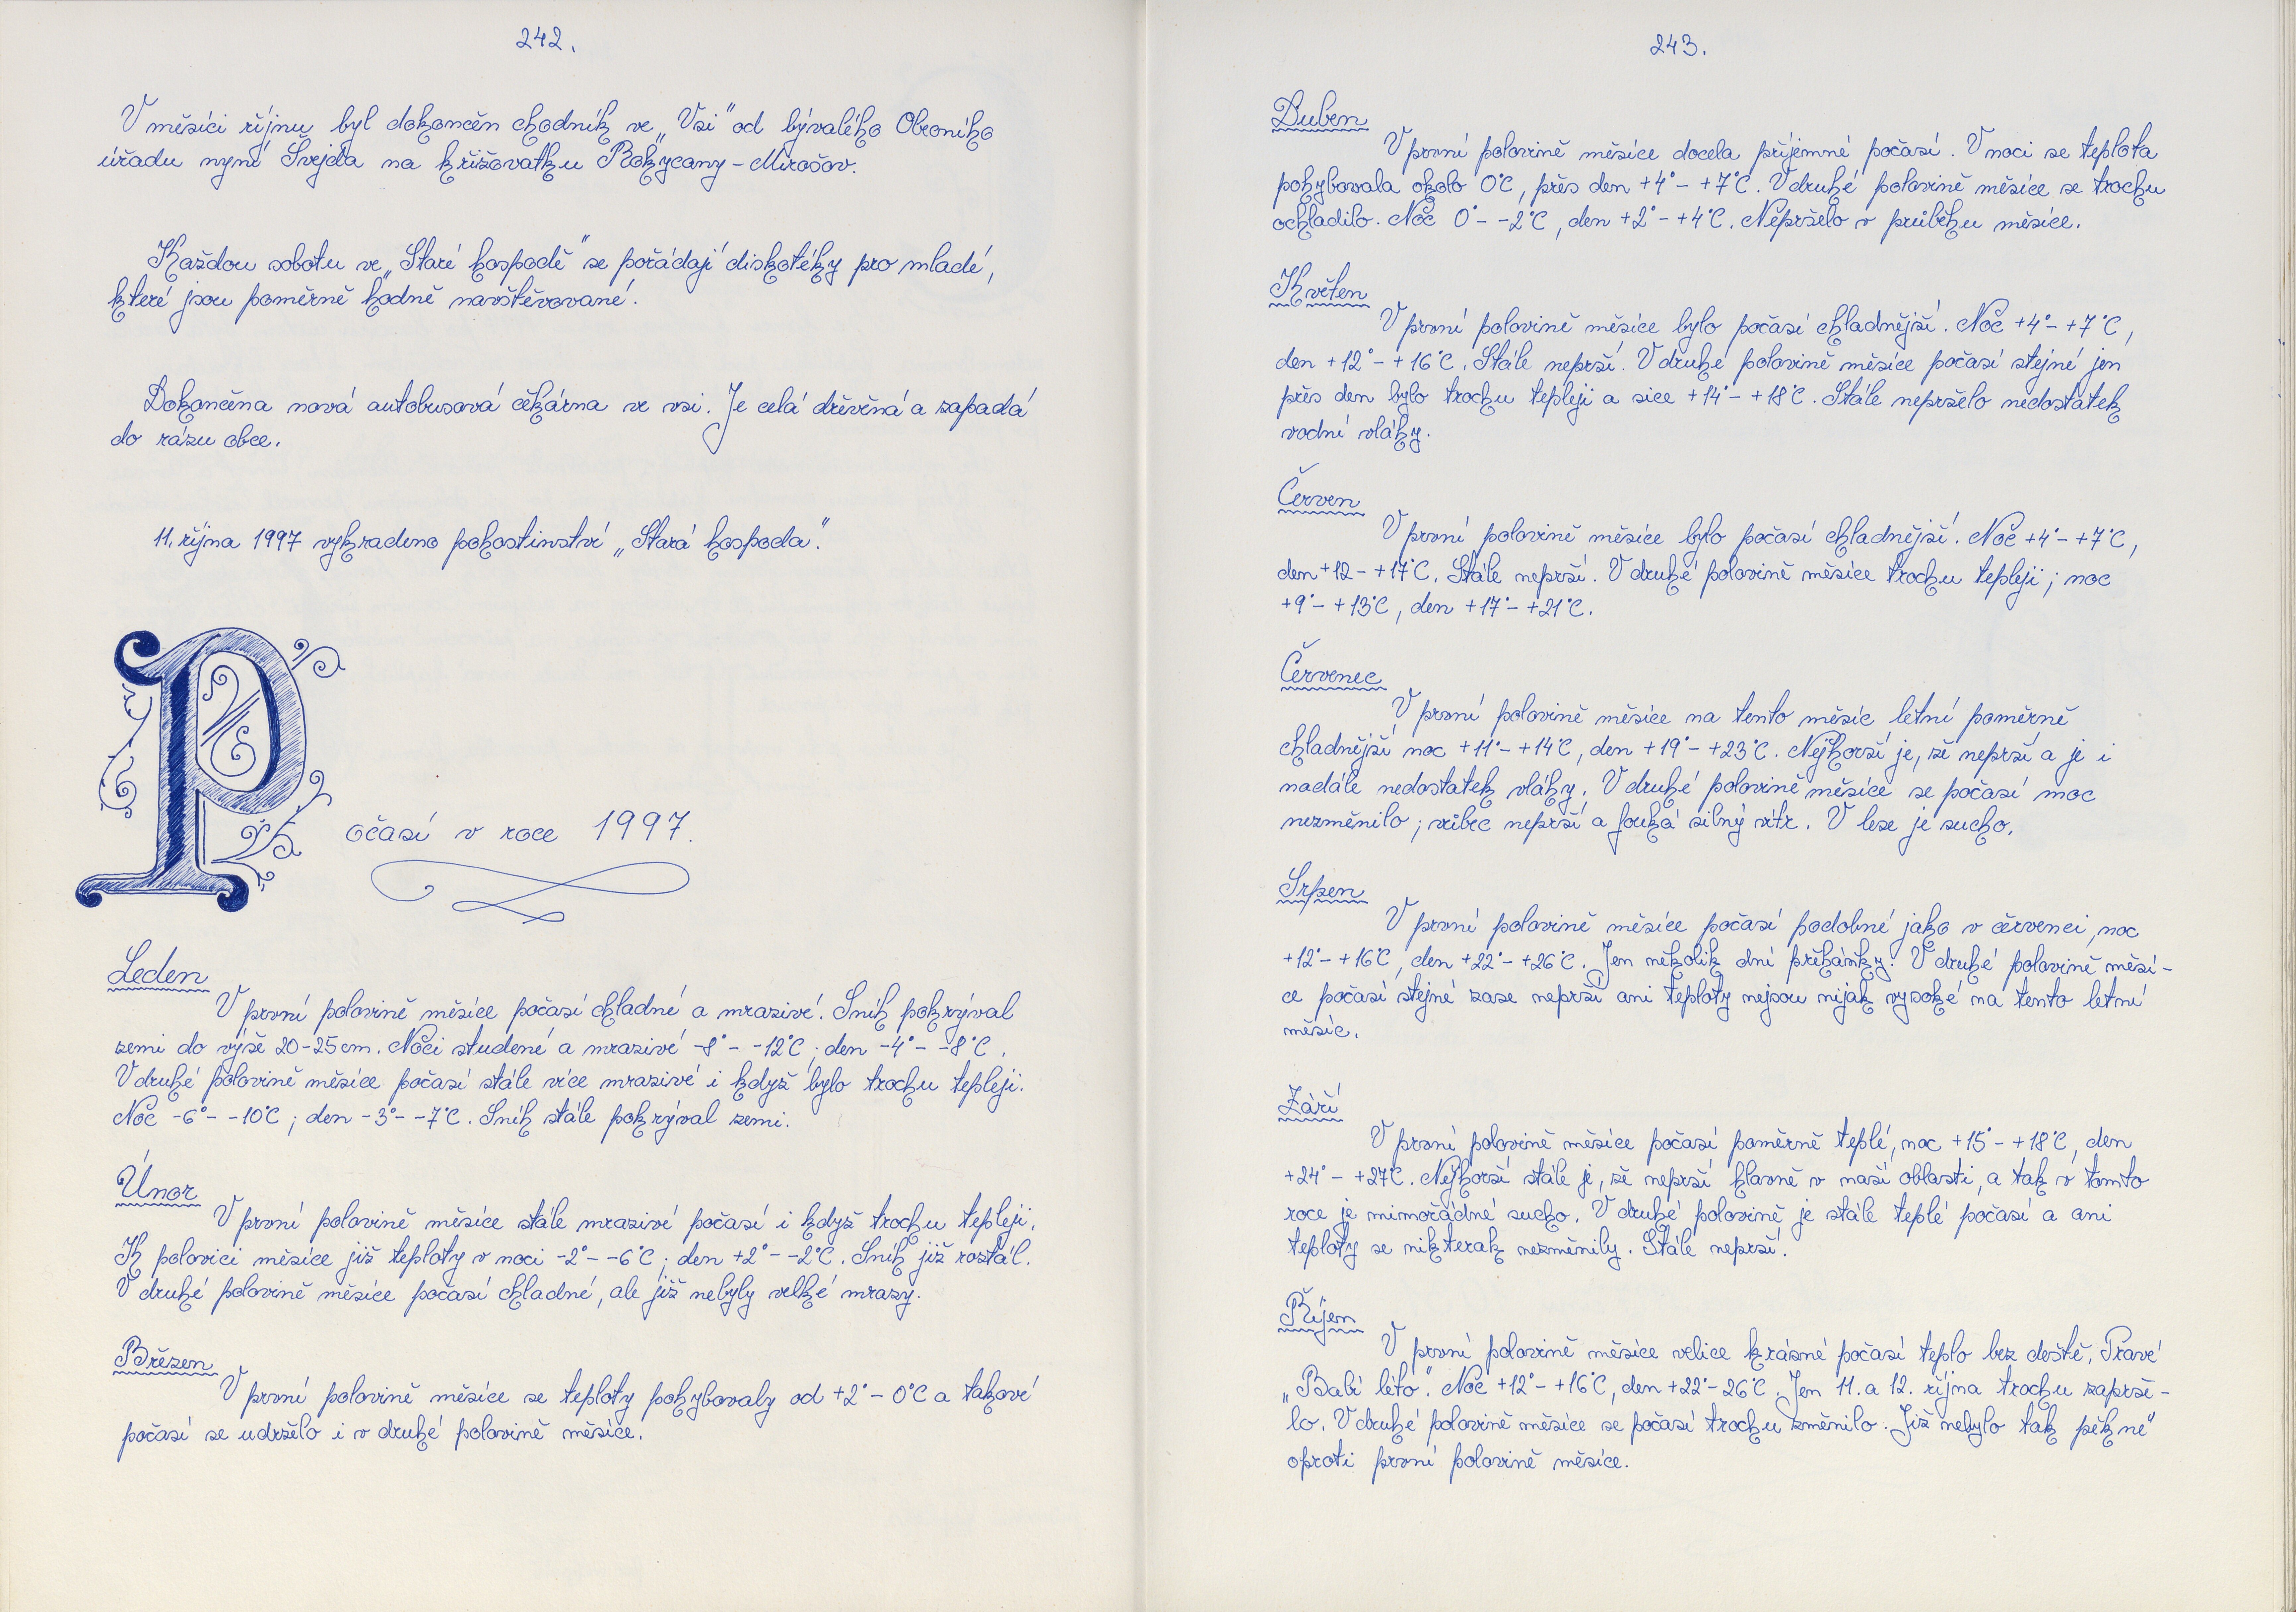 242.
V měsíci říjnu byl dokončen chodník ve „Vsi" od bývalého Obecního
úřadu nyní Švejda na křižovatku Rokycany - Mirošov.
Každou sobotu ve „Staré hospodě" se pořádají diskotéky pro mladé,
které jsou poměrně hodně navštěvované.
Dokončena nová autobusová čekárna ve vsi. Je celá dřevěná a zapadá
do rázu obce.
11. října 1997 vykradeno pohostinství „Stará hospoda".
Počasí v roce 1997.
Leden
V první polovině měsíce počasí chladné a mrazivé. Sníh pokrýval
zemi do výše 20-25cm. Noci studené a mrazivé -8° - -12°C; den -4° - -8°C.
V druhé polovině měsíce počasí stále více mrazivé i když bylo trochu tepleji.
Noc -6° - -10°C; den -3° - -7°C. Sníh stále pokrýval zemi.
Únor
V první polovině měsíce stále mrazivé počasí i když trochu tepleji.
K polovici měsíce již teploty v noci -2° - -6°C; den +2° - -2°C. Sníh již roztál.
V druhé polovině měsíce počasí chladné, ale již nebyly velké mrazy.
Březen
V první polovině měsíce se teploty pohybovaly od +2° - 0°C a takové
počasí se udrželo i v druhé polovině měsíce.
243.
Duben
V první polovině měsíce docela příjemné počasí. V noci se teplota
pohybovala okolo 0°C, přes den +4° - +7°C. V druhé polovině měsíce se trochu
ochladilo. Noc 0° - -2°C, den +2° - +4°C. Nepršelo v průběhu měsíce.
Květen
V první polovině měsíce bylo počasí chladnější. Noc +4° - +7°C,
den +12° - +16°C. Stále neprší. V druhé polovině měsíce počasí stejné jen
přes den bylo trochu tepleji a sice +14° - +18°C. Stále nepršelo nedostatek
vodní vláhy.
Červen
V první polovině měsíce bylo počasí chladnější. Noc +4° - +7°C,
den +12 - +17°C. Stále neprší. V druhé polovině měsíce trochu tepleji; noc
+9° - +13°C, den +17° - +21°C.
Červenec
V první polovině měsíce na tento měsíc letní poměrně
chladnější noc +11° - +14°C, den +19° - +23°C. Nejhorší je, že neprší a je i
nadále nedostatek vláhy. V druhé polovině měsíce se počasí moc
nezměnilo; vůbec neprší a fouká silný vítr. V lese je sucho.
Srpen
V první polovině měsíce počasí podobné jako v červenci, noc
+12° - +16°C, den +22° - +26°C. Jen několik dní přeháňky. V druhé polovině měsí-
ce počasí stejné zase neprší ani teploty nejsou nijak vysoké na tento letní
měsíc.
Září
V první polovině měsíce počasí poměrně teplé, noc +15° - +18°C, den
+24° - +27°C. Nejhorší stále je, že neprší hlavně v naší oblasti, a tak v tomto
roce je mimořádné sucho. V druhé polovině je stále teplé počasí a ani
teploty se nikterak nezměnily. Stále neprší.
Říjen
V první polovině měsíce velice krásné počasí teplo bez deště. Pravé
„Babí léto". Noc +12° - +16°C, den +22° - 26°C. Jen 11. a 12. října trochu zaprše-
lo. V druhé polovině měsíce se počasí trochu změnilo. Již nebylo tak pěkné"
oproti první polovině měsíce.